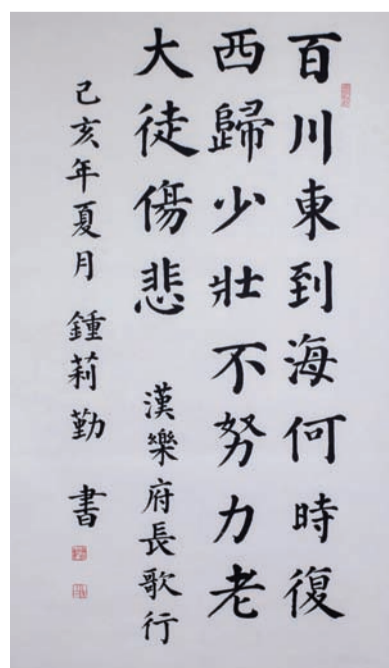 百川東到海何時復
西歸少壯不努力老
大徒傷悲
漢樂府長歌行
己亥年夏月 鍾莉勤 書